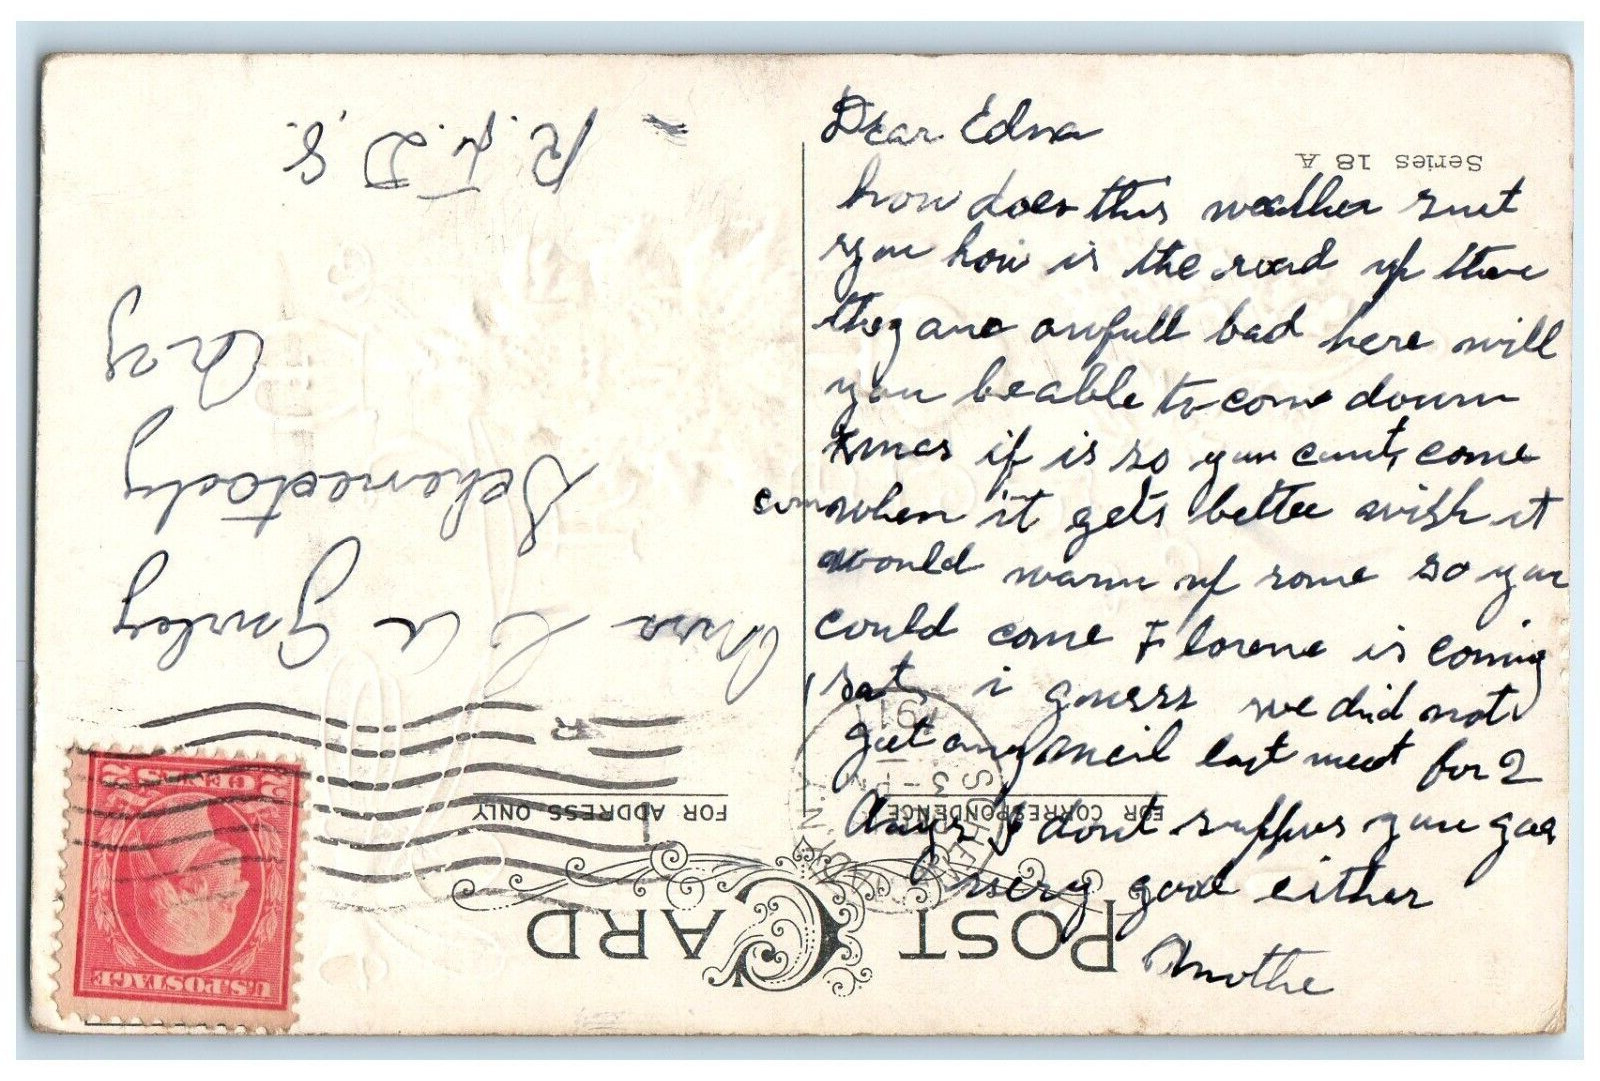 Dear Edna
how does this weather suet
you how is the road up there
they are awfull bad here will
you be able to come down
xmas if is so you cant, come
come when it gets better wish it
would warm up some so you
could come Florene is coming
sat, i guess we did not
get any meil last week for 2
days I dont suppos you goa
very good either
Mothe
Series 18 A
POST CARD
FOR CORRESPONDENCE
FOR ADDRESS ONLY
U.S. POSTAGE
2 CENTS 2
Mrs C A Gurley
Schenectady
N y
R. F. D. 8.